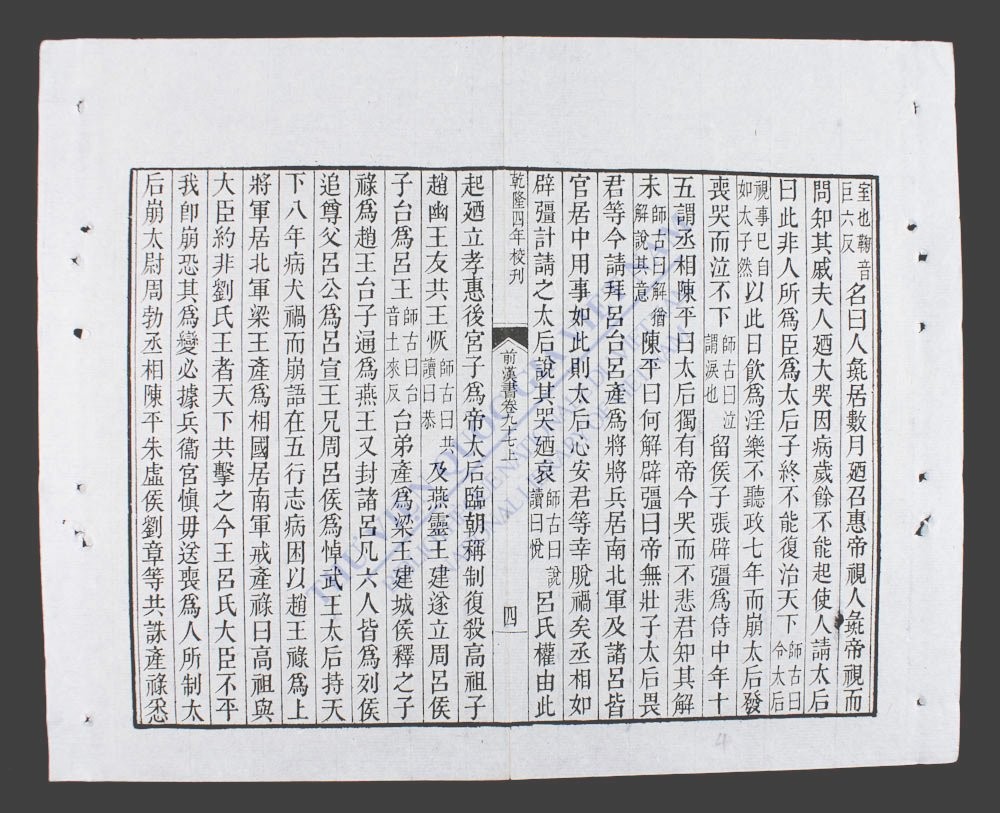 室也鞠音巨六反名曰人彘居數月廼召惠帝視人彘帝視而
問知其戚夫人廼大哭因病歲餘不能起使人請太后
曰此非人所爲臣爲太后子終不能復治天下師古曰令太后
視事已自如太子然以此日飲爲淫樂不聽政七年而崩太后發
喪哭而泣不下師古曰泣謂淚也留侯子張辟彊爲侍中年十
五謂丞相陳平曰太后獨有帝今哭而不悲君知其解
未師古曰解猶解說其意陳平曰何解辟彊曰帝無壯子太后畏
君等今請拜呂台呂產爲將將兵居南北軍及諸呂皆
官居中用事如此則太后心安君等幸脫禍矣丞相如
辟彊計請之太后說其哭廼哀師古曰說讀曰悅呂氏權由此
乾隆四年校刊
前漢書卷九七上
四
起廼立孝惠後宮子爲帝太后臨朝稱制復殺高祖子
趙幽王友共王恢師古曰共讀曰恭及燕靈王建遂立周呂侯
子台爲呂王師古曰台音土來反台弟產爲梁王建城侯釋之子
祿爲趙王台子通爲燕王又封諸呂凡六人皆爲列侯
追尊父呂公爲呂宣王兄周呂侯爲悼武王太后持天
下八年病犬禍而崩語在五行志病困以趙王祿爲上
將軍居北軍梁王產爲相國居南軍戒產祿曰高祖與
大臣約非劉氏王者天下共擊之今王呂氏大臣不平
我卽崩恐其爲變必據兵衞宮愼毋送喪爲人所制太
后崩太尉周勃丞相陳平朱虛侯劉章等共誅產祿悉
4
THƯ VIỆN QUỐC GIA VIỆT NAM